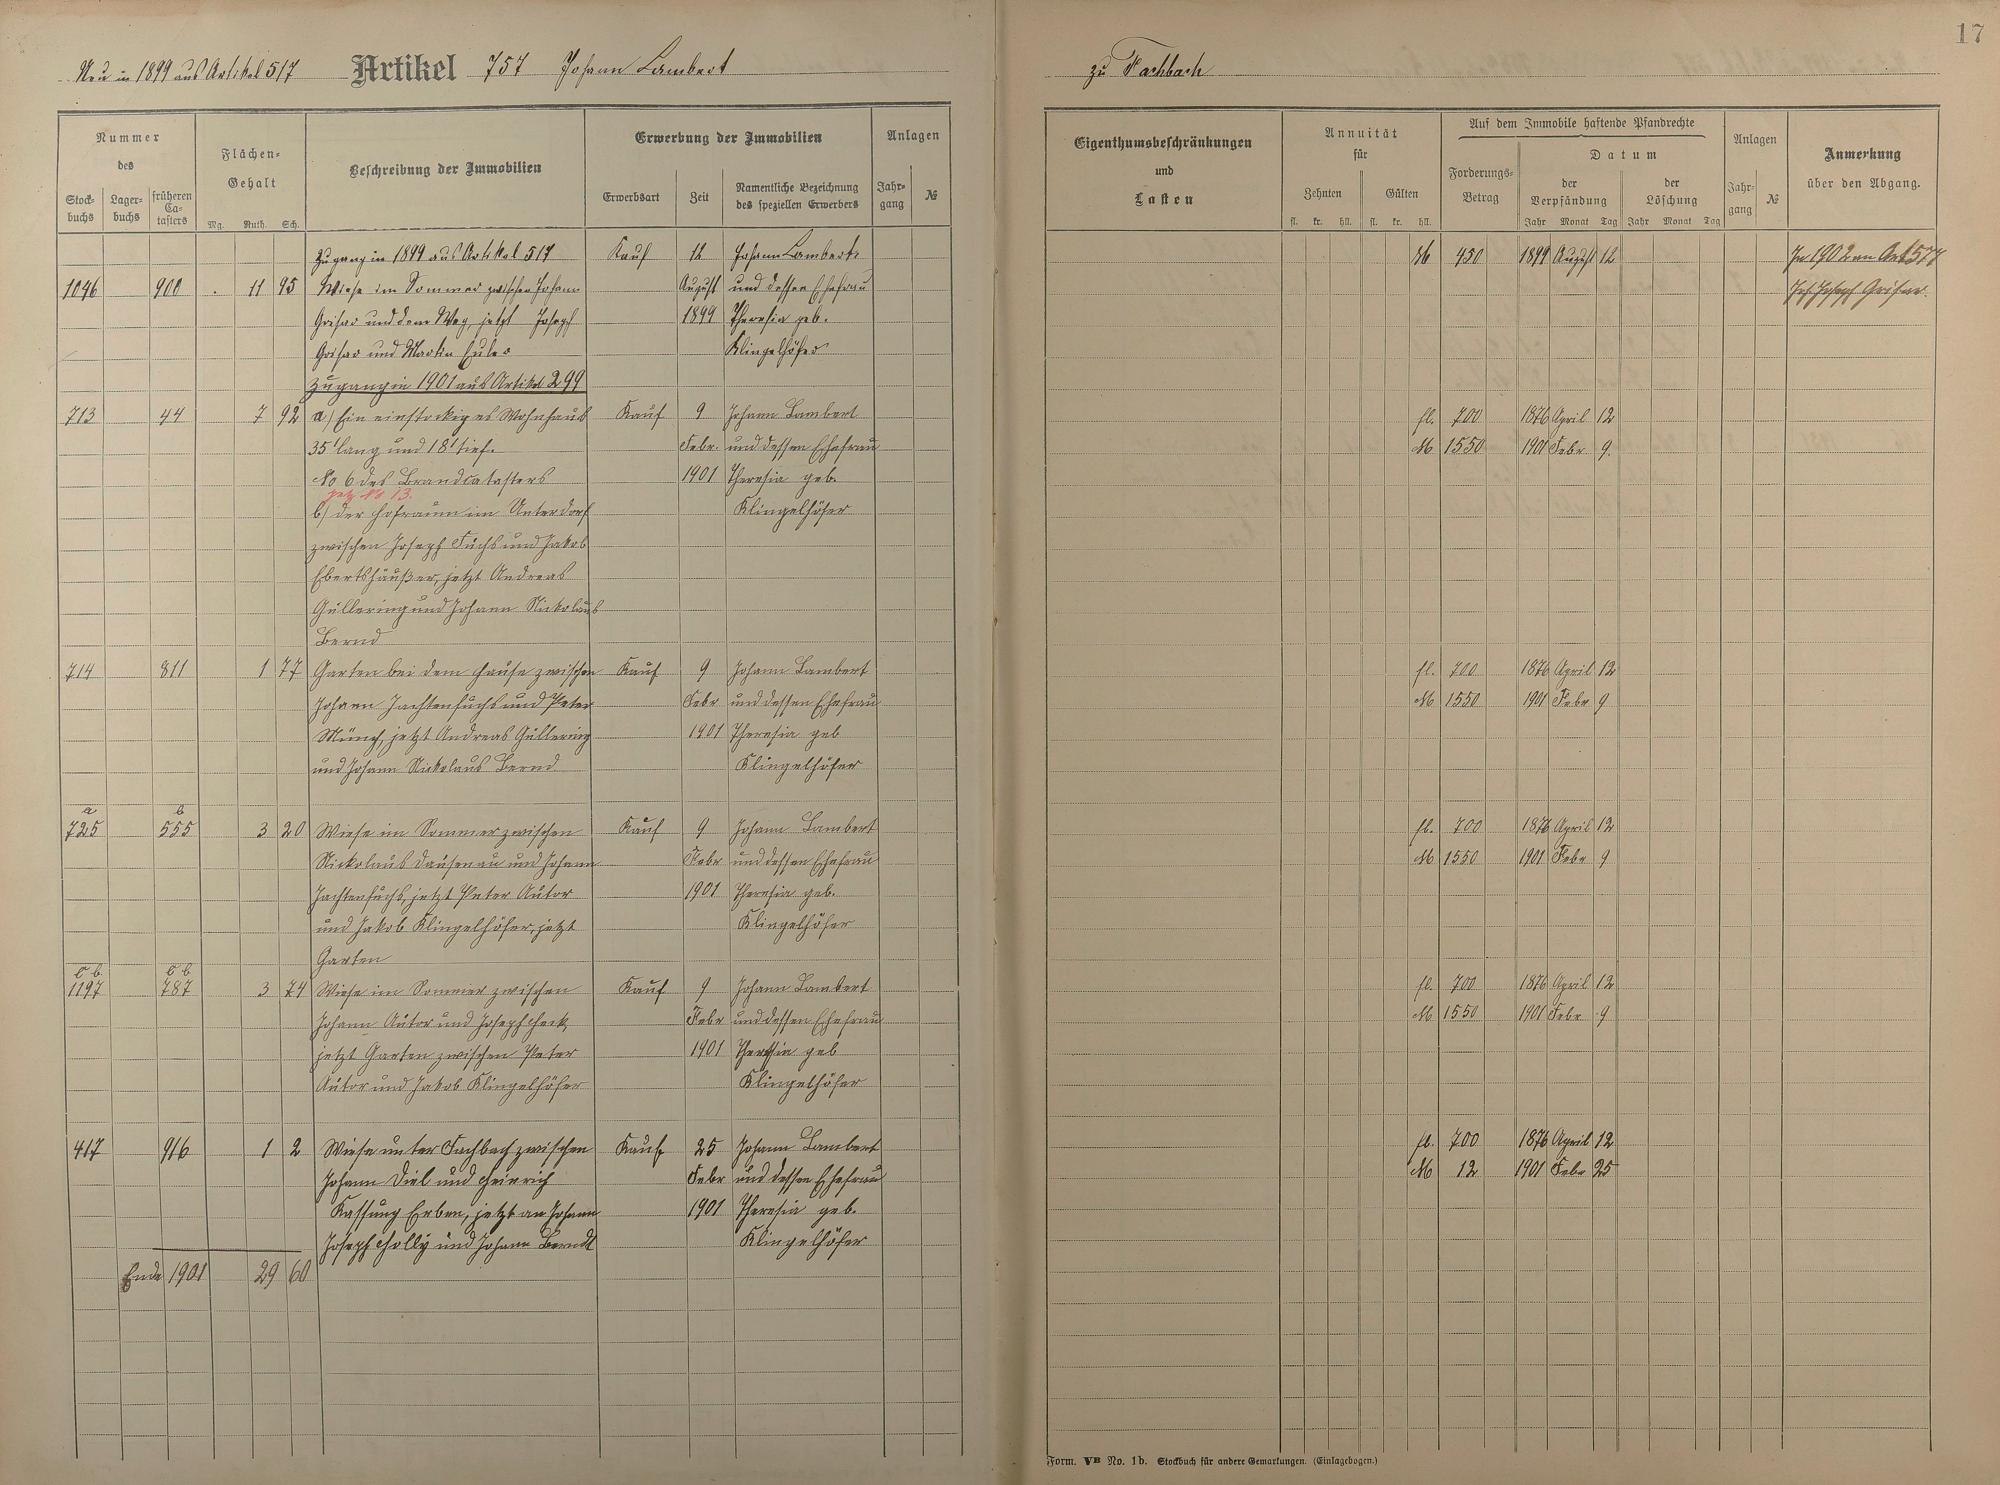 17
Neu in 1899 aus Artikel 517 Artikel 757 Johann Lambert
zu Fachbach
Nummer des
Stockbuchs Lagerbuchs früheren Catasters
Flächen-Gehalt
Mg. Ruth. Sch.
Beschreibung der Immobilien
Erwerbung der Immobilien
Erwerbsart Zeit Namentliche Bezeichnung des speziellen Erwerbers
Anlagen
Jahrgang №
Eigenthumsbeschränkungen und Lasten
Annuität für
Zehnten Gülten
fl. kr. hll. fl. kr. hll.
Auf dem Immobile haftende Pfandrechte
Forderungs-Betrag
Datum
der Verpfändung der Löschung
Jahr Monat Tag Jahr Monat Tag
Anlagen
Jahrgang №
Anmerkung über den Abgang.
Zugang in 1899 aus Artikel 517 Kauf 12 Johann Lambert M 450 1899 August 12 In 1902 an Art 577
1046 900 . 11 95 Wiese im Sommer zwischen Johann August und dessen Ehefrau Joh. Joseph Grisar.
Grisar und dem Weg, jetzt Joseph 1899 Theresia geb.
Grisar und Martin Euler Klingelhöfer
Zugang in 1901 aus Artikel 299
713 44 7 92 a) Ein einstockiges Wohnhaus Kauf 9 Johann Lambert fl. 700 1876 April 12
35' lang und 18' tief. Febr. und dessen Ehefrau M 1550 1901 Febr 9.
No 6 des Brandcatasters 1901 Theresia geb.
jetzt No 13.
b) der Hofraum im Unterdorf Klingelhöfer
zwischen Joseph Fuchs und Jakob
Ebertshäußer, jetzt Andreas
Güllering und Johann Nickolaus
Bernd
714 811 1 77 Garten bei dem Hause zwischen Kauf 9 Johann Lambert fl. 700 1876 April 12
Johann Jachtenfuchs und Peter Febr und dessen Ehefrau M 1550 1901 Febr 9
Münch, jetzt Andreas Güllering 1901 Theresia geb
und Johann Nickolaus Bernd Klingelhöfer
a b
725 555 3 20 Wiese im Sommer zwischen Kauf 9 Johann Lambert fl. 700 1876 April 12
Nickolaus Dausenau und Johann Febr und dessen Ehefrau M 1550 1901 Febr 9
Jachtenfuchs, jetzt Peter Autor 1901 Theresia geb.
und Jakob Klingelhöfer, jetzt Klingelhöfer
Garten
c b c b
1197 787 3 74 Wiese im Sommer zwischen Kauf 9 Johann Lambert fl. 700 1876 April 12
Johann Autor und Joseph Heck Febr und dessen Ehefrau M 1550 1901 Febr 9
jetzt Garten zwischen Peter 1901 Theresia geb
Autor und Jakob Klingelhöfer Klingelhöfer
417 916 1 2 Wiese unter Fachbach zwischen Kauf 25 Johann Lambert fl. 700 1876 April 12
Johann Diel und Heinrich Febr und dessen Ehefrau M 12 1901 Febr 25
Kassung Erben, jetzt an Johann 1901 Theresia geb.
Joseph Holly und Johann Berndt Klingelhöfer
Ende 1901 29 60
Form. VB No. 1b. Stockbuch für andere Gemarkungen. (Einlagebogen.)